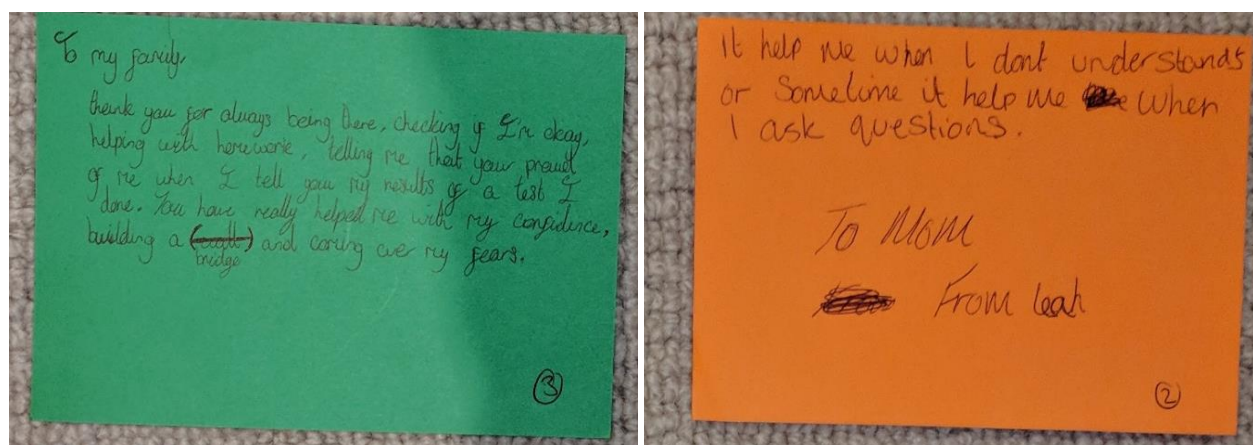 To my family,
thank you for always being there, checking if I'm okay,
helping with homework, telling me that your proud
of me when I tell you my results of a test I
done. You have really helped me with my confidence,
building a (wall) and coming over my fears.
bridge
3
It help me when I dont understands
or Sometime it help me when
I ask questions.
To Mom
From leah
2